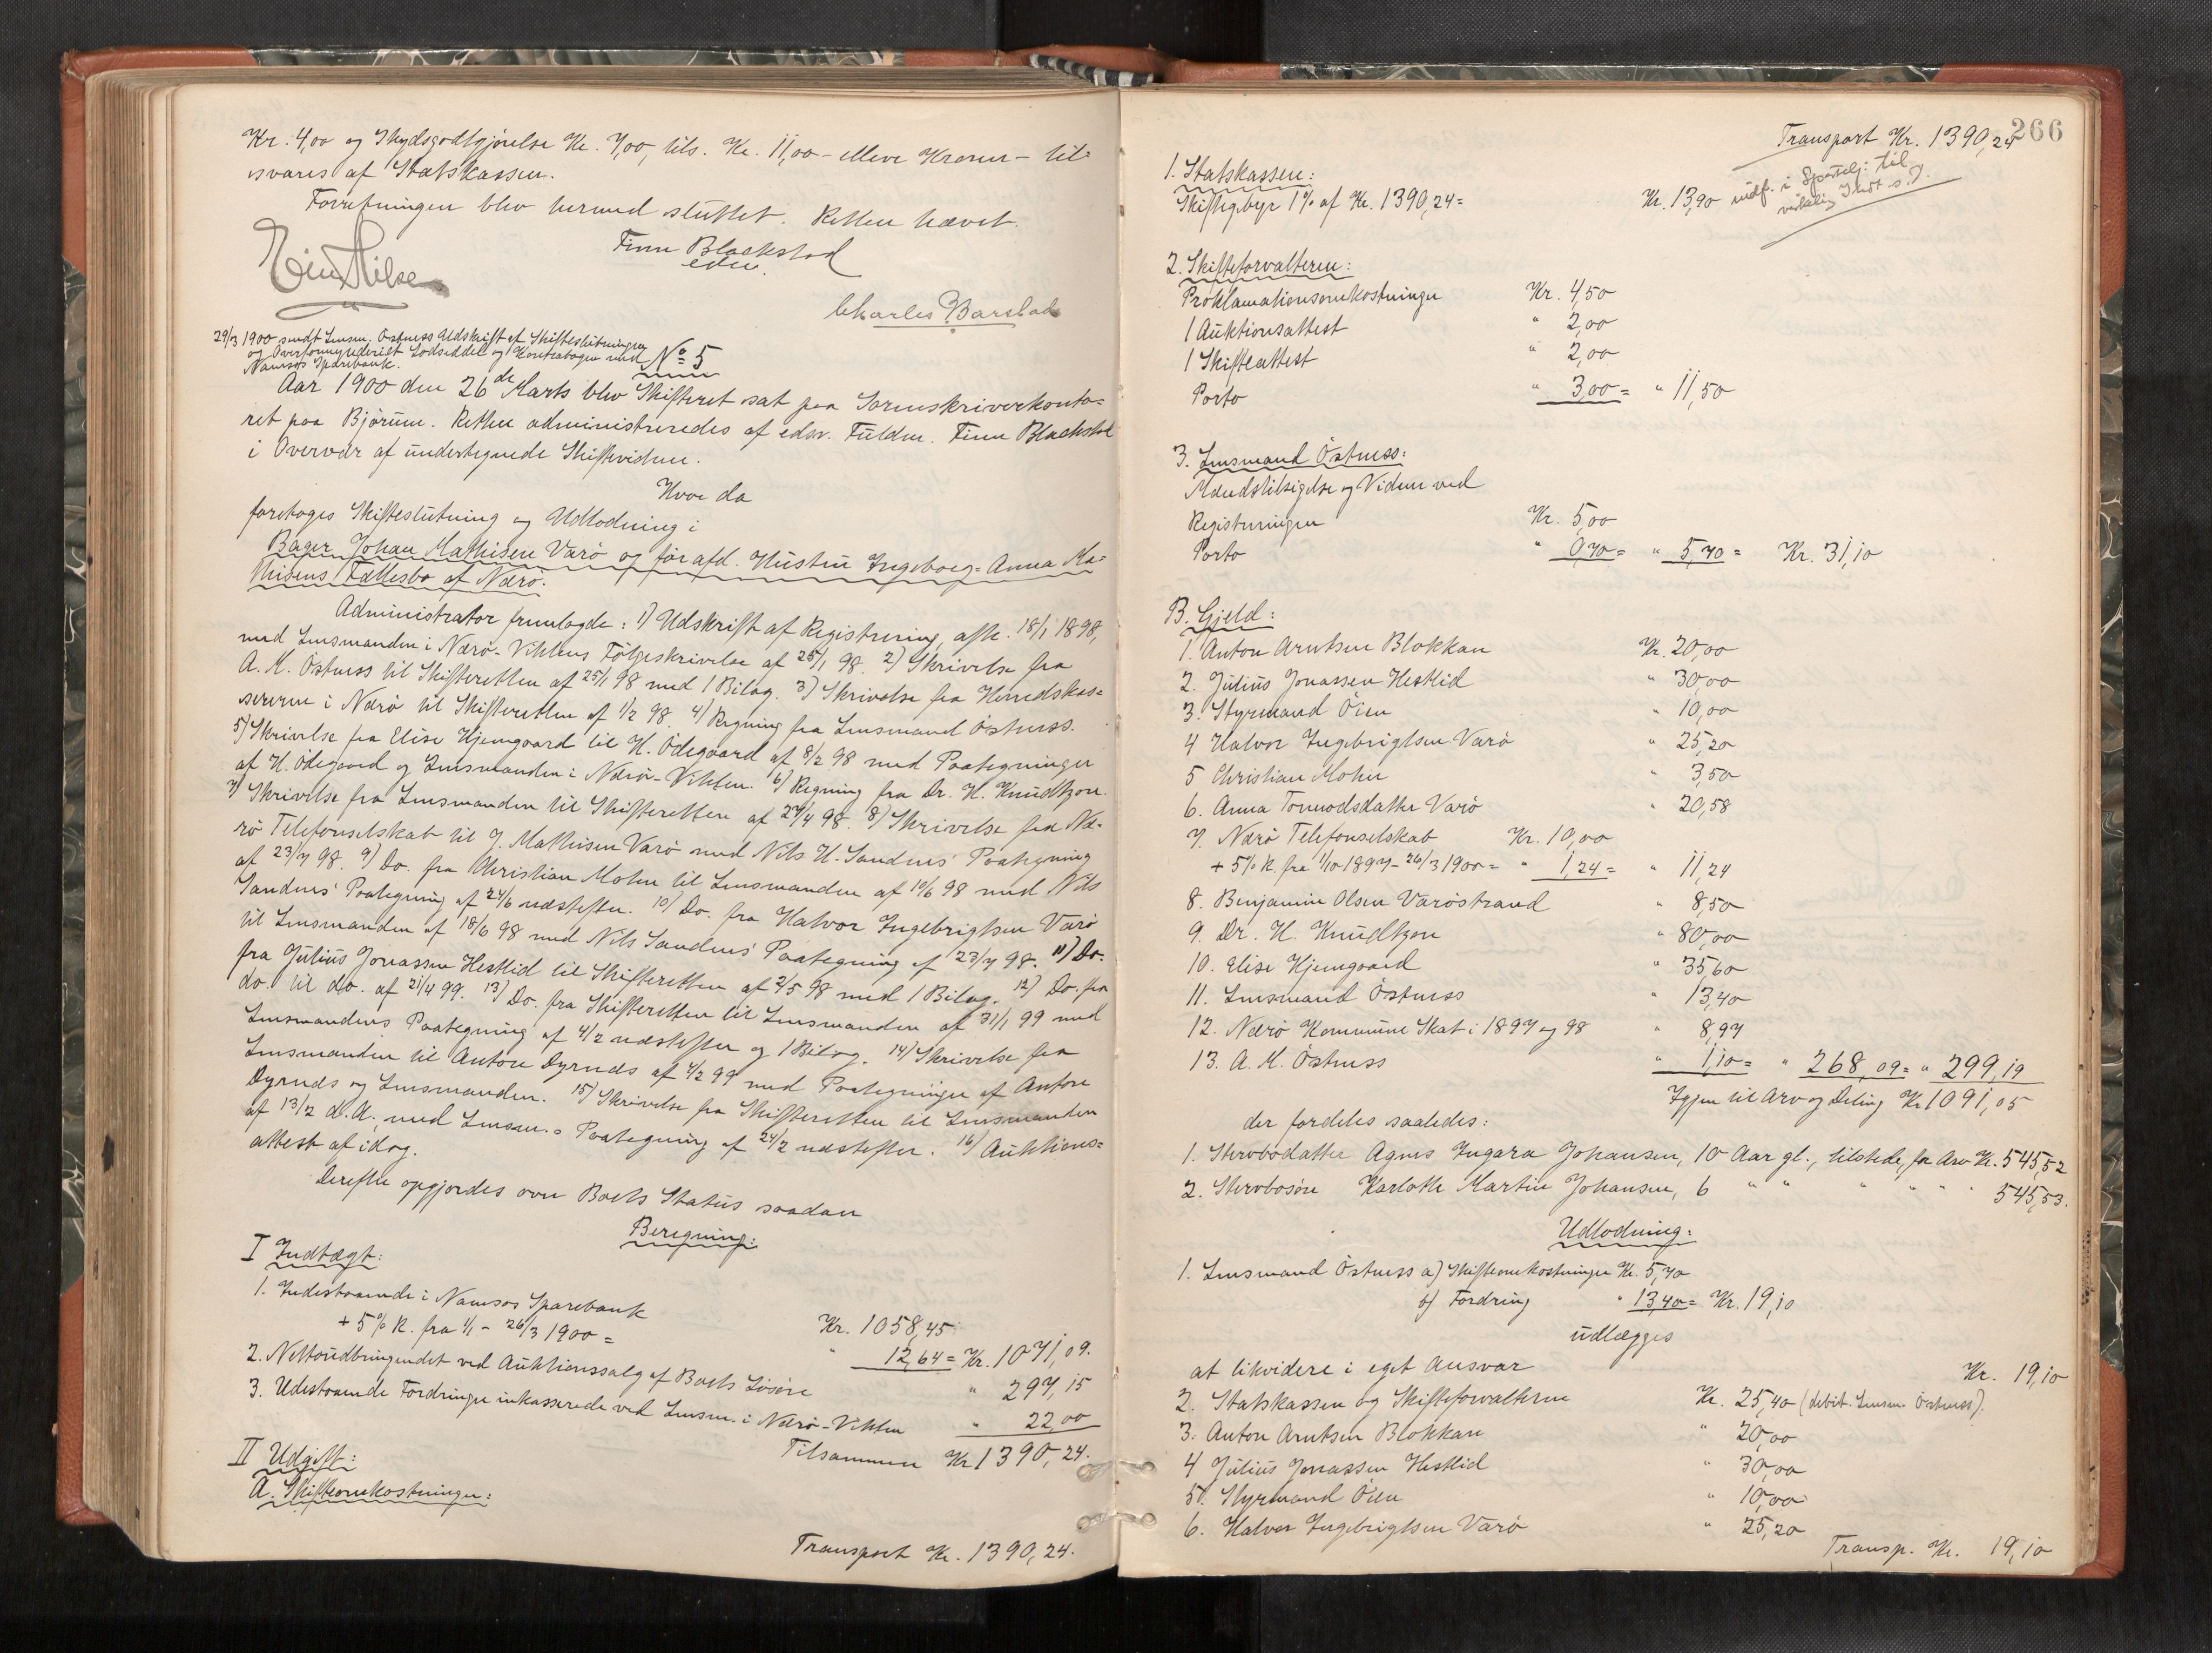 Kr. 4,00 og Skydsgodtgjörelse Kr. 7,00, tils. Kr. 11,00 - elleve Kroner - til-
svares af Statskassen.
Forretningen blev hermed sluttet. Retten hævet.
Finn Blackstad
edsv.
Charles Barstad
29/3 1900 sendt Lensm. Östness Udskrift af Skifteslutningen
og Overformynderiet Lodseddel og Kontrabogen med
Namsos Sparebank.
No 5
Aar 1900 den 26de Marts blev Skifteret sat paa Sorenskriverkonto-
ret paa Bjørum. Retten administreredes af edsv. Fuldm. Finn Blackstad
i Overvær af undertegnede Skiftevidner.
Hvor da
foretoges Skifteslutning og Udlodning i
Bager Johan Mathisen Varö og før afd. Hustru Ingeborg-Anna Ma-
thisens Fællesbo af Nærö.
Administrator fremlagde: 1) Udskrift af Registrering, afh. 18/1 1898,
med Lensmanden i Nærö-Viktens Følgeskrivelse af 25/1 98. 2) Skrivelse fra
A. M. Östness til Skifteretten af 25/1 98 med 1 Bilag. 3) Skrivelse fra Herredskas-
sereren i Nærö til Skifteretten af 1/2 98. 4) Regning fra Lensmand Östness.
5) Skrivelse fra Elise Hjemgaard til H. Ödegaard af 8/2 98 med Paategninger
af H. Ödegaard og Lensmanden i Nærö-Vikten. 6) Regning fra Dr. H. Knudtzon.
7) Skrivelse fra Lensmanden til Skifteretten af 27/4 98. 8) Skrivelse fra Næ-
rö Telefonselskab til J. Mathisen Varö med Nils H. Sandnes' Paategning
af 23/7 98. 9) Do. fra Christian Mohn til Lensmanden af 10/6 98 med Nils
Sandnes' Paategning af 24/6 næstefter. 10) Do. fra Halvor Ingebrigtsen Varö
til Lensmanden af 18/6 98 med Nils Sandnes' Paategning af 23/7 98. 11) Do.
fra Julius Jonassen Hestlid til Skifteretten af 2/5 98 med 1 Bilag. 12) Do. fra
do. til do. af 21/4 99. 13) Do. fra Skifteretten til Lensmanden af 31/1 99 med
Lensmandens Paategning af 4/2 næstefter og 1 Bilag. 14) Skrivelse fra
Lensmanden til Anton Dyrnes af 4/2 99 med Paategninger af Anton
Dyrnes og Lensmanden. 15) Skrivelse fra Skifteretten til Lensmanden
af 13/2 d. A. med Lensm.s Paategning af 24/2 næstefter. 16) Auktions-
attest af idag.
Derefter opgjordes over Boets Status saadan
Beregning:
I Indtægt:
1. Indestaaende i Namsos Sparebank Kr. 1058,45
+ 5% R. fra 1/1 - 26/3 1900 = " 12,64 = Kr. 1071,09.
2. Nettoudbringendet ved Auktionssalg af Boets Løsøre " 297,15
3. Udestaaende Fordringer inkasserede ved Lensm. i Nærö-Vikten " 22,00
Tilsammen Kr. 1390,24.
II Udgift:
A. Skifteomkostninger:
Transport Kr. 1390,24.
266
Transport Kr. 1390,24
1. Statskassen:
Skiftegebyr 1% af Kr. 1390,24 = Kr. 13,90 udf. i Sportelj. til
s.D.
2. Skifteforvalteren:
Proklamationsomkostninger Kr. 4,50
1 Auktionsattest " 2,00
1 Skifteattest " 2,00
Porto " 3,00 = " 11,50
3. Lensmand Östness:
Mændstilsigelse og Vidner ved
Registreringen Kr. 5,00
Porto " 0,70 = " 5,70 = Kr. 31,10
B. Gjeld:
1. Anton Arntsen Blokkan Kr. 20,00
2. Julius Jonassen Hestlid " 30,00
3. Styrmand Öien " 10,00
4 Halvor Ingebrigtsen Varö " 25,20
5 Christian Mohn " 3,50
6. Anna Tormodsdatter Varö " 20,58
7. Nærö Telefonselskab Kr. 10,00
+ 5% R. fra 1/10 1897 - 26/3 1900 = " 1,24 = " 11,24
8. Benjamin Olsen Varöstrand " 8,50
9. Dr. H. Knudtzon " 80,00
10. Elise Hjemgaard " 35,60
11. Lensmand Östness " 13,40
12. Nærö Kommune Skat i 1897 og 98 " 8,97
13. A. M. Östness " 1,10 = " 268,09 = " 299,19
Igjen til Arv og Deling Kr. 1091,05
der fordeles saaledes:
1. Stervbodatter Agnes Ingara Johansen, 10 Aar gl., tilstede, for Arv Kr. 545,52
2. Stervbosön Karloth Martin Johansen, 6 " " " " " 545,53.
Udlodning:
1. Lensmand Östness a) Skifteomkostninger Kr. 5,70
b) Fordring " 13,40 = Kr. 19,10
udlægges
at likvidere i eget Ansvar Kr. 19,10
2. Statskassen og Skifteforvalteren Kr. 25,40 (debit. Lensm. Östness).
3. Anton Arntsen Blokkan " 20,00
4 Julius Jonassen Hestlid " 30,00
5. Styrmand Öien " 10,00
6. Halvor Ingebrigtsen Varö " 25,20
Transp. Kr. 19,10